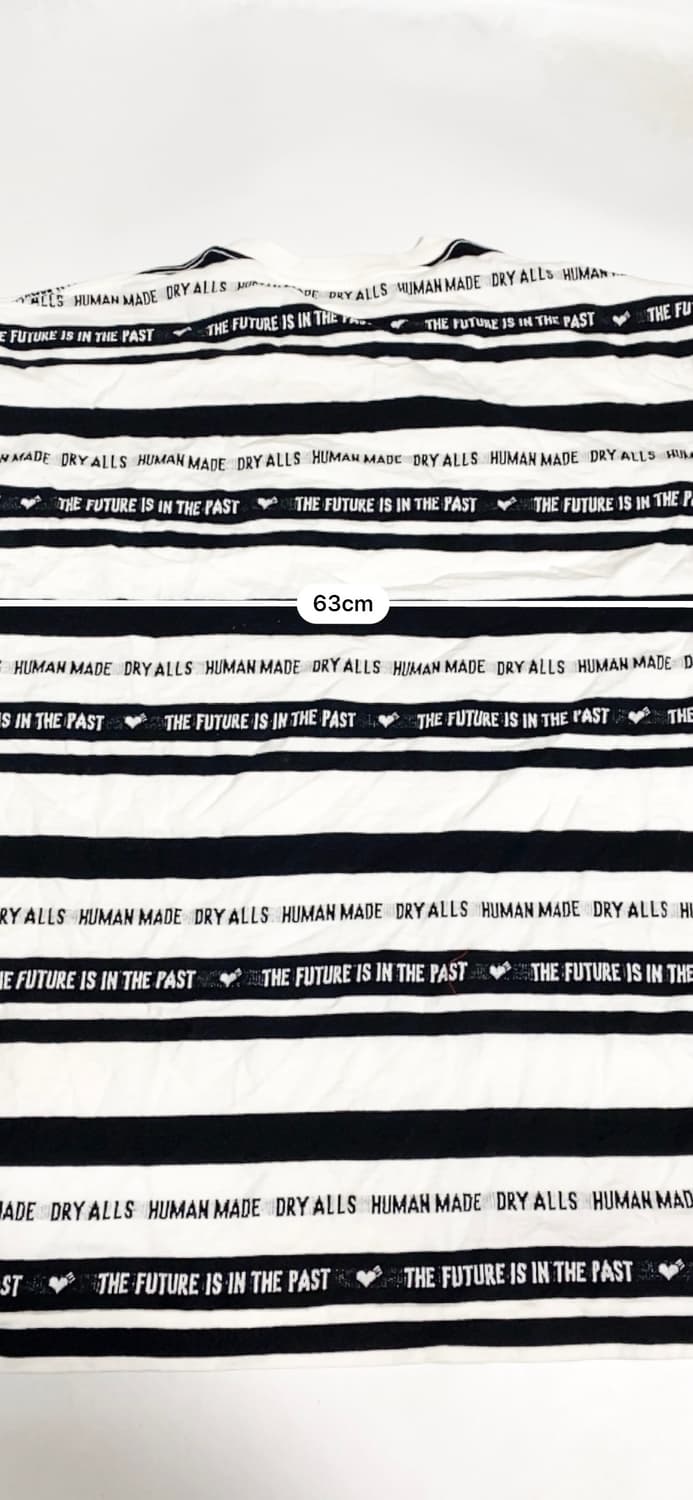 ALLS HUMAN MADE DRY ALLS DRY ALLS HUMAN MADE DRY ALLS HUMAN
E FUTURE IS IN THE PAST THE FUTURE IS IN THE THE FUTURE IS IN THE PAST THE FU
N MADE DRY ALLS HUMAN MADE DRY ALLS HUMAN MADE DRY ALLS HUMAN MADE DRY ALLS HUM
THE FUTURE IS IN THE PAST THE FUTURE IS IN THE PAST THE FUTURE IS IN THE P
63cm
HUMAN MADE DRY ALLS HUMAN MADE DRY ALLS HUMAN MADE DRY ALLS HUMAN MADE D
S IN THE PAST THE FUTURE IS IN THE PAST THE FUTURE IS IN THE PAST THE
RY ALLS HUMAN MADE DRY ALLS HUMAN MADE DRY ALLS HUMAN MADE DRY ALLS HU
HE FUTURE IS IN THE PAST THE FUTURE IS IN THE PAST THE FUTURE IS IN THE
ADE DRY ALLS HUMAN MADE DRY ALLS HUMAN MADE DRY ALLS HUMAN MAD
ST THE FUTURE IS IN THE PAST THE FUTURE IS IN THE PAST